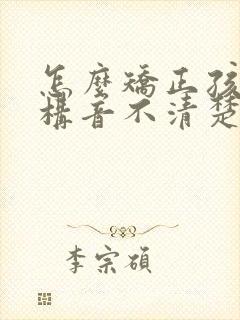 怎麼矯正孩
構音不清楚
李宗碩